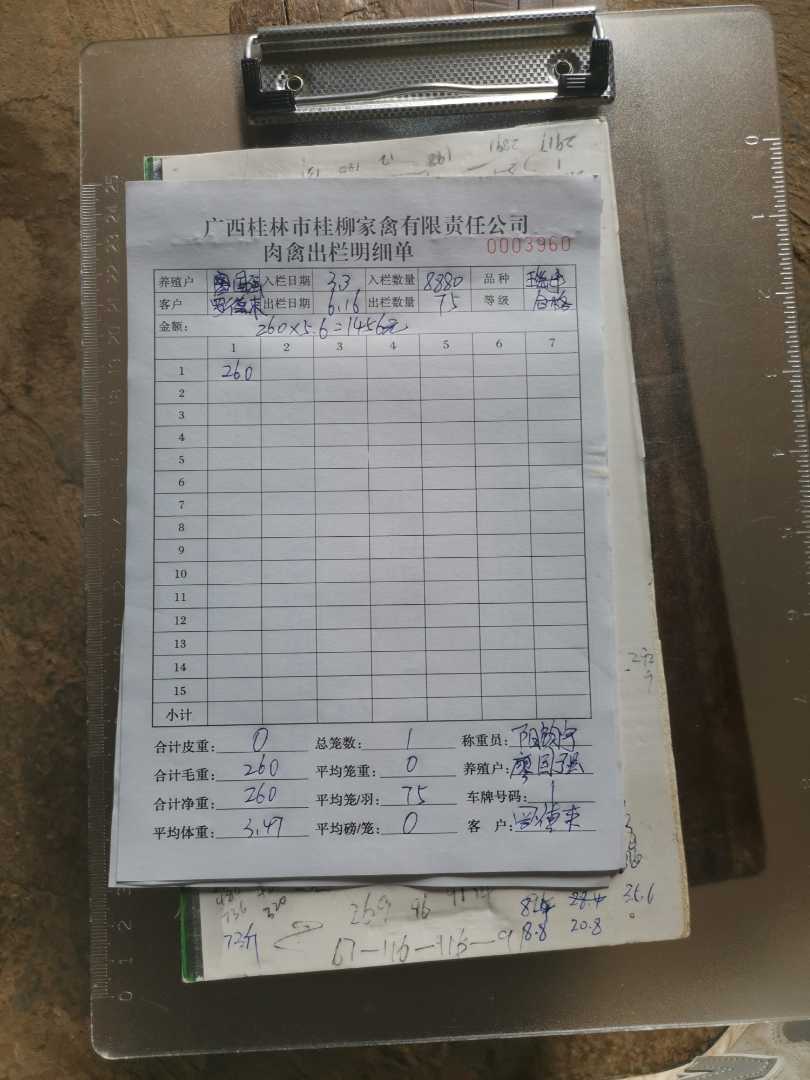 广西桂林市桂柳家禽有限责任公司
肉禽出栏明细单 0003960
养殖户 入栏日期 3.3 入栏数量 8880 品种
客户 出栏日期 6.16 出栏数量 75 等级 合格
金额: 260×5.6=1456元
1 2 3 4 5 6 7
1 260
2
3
4
5
6
7
8
9
10
11
12
13
14
15
小计
合计皮重: 0 总笼数: 1 称重员:
合计毛重: 260 平均笼重: 0 养殖户: 廖国强
合计净重: 260 平均笼/羽: 75 车牌号码: 1
平均体重: 3.47 平均磅/笼: 0 客 户:
736 320
269 96
28.4 35.6
8.8 20.8
67-116-116-91